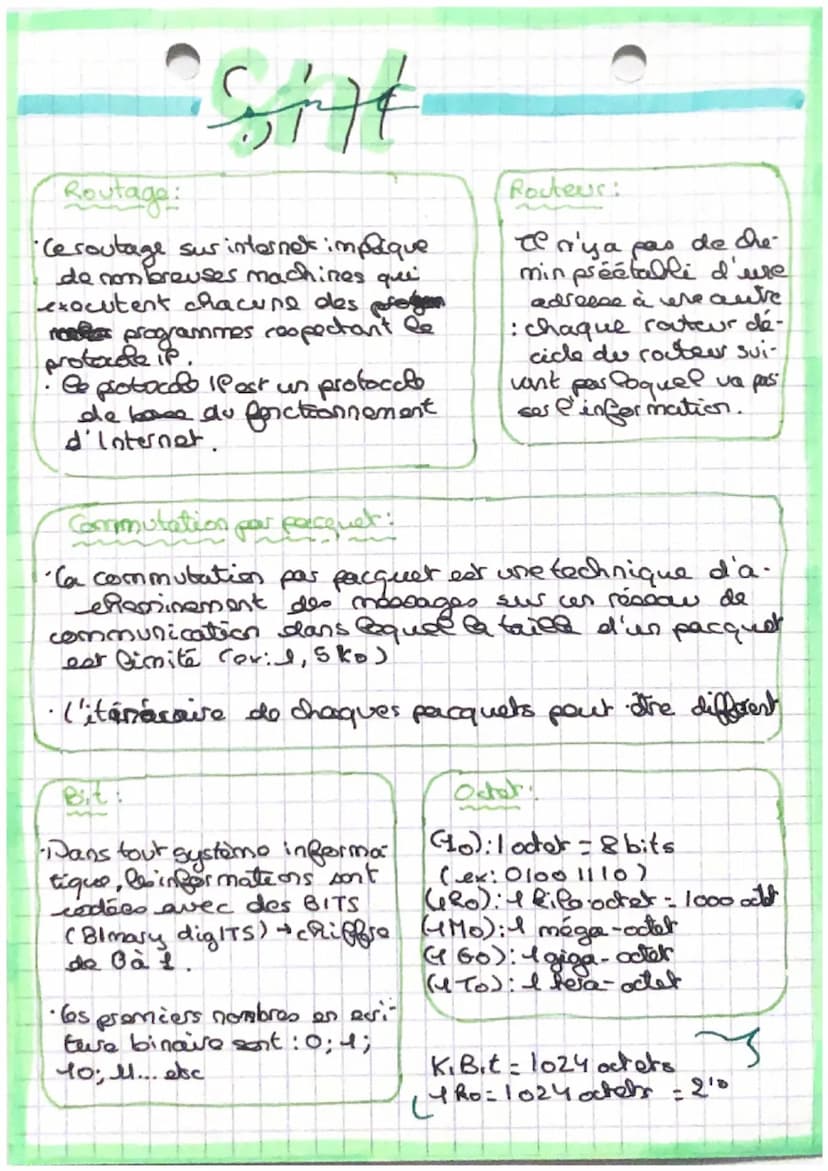 snt
Routage:
· Le routage sur internet implique
de nombreuses machines qui
executent chacune des
programmes respectant le
protocole IP.
· Le protocole IP est un protocole
de base du fonctionnement
d'Internet.
Routeur:
Il n'y a pas de che-
min préétabli d'une
adresse à une autre
: chaque routeur dé-
cide du routeur sui-
vant par lequel va pas
ser l'information.
Commutation par pacquet:
· La commutation par pacquet est une technique d'a-
cheminement des messages sur un réseau de
communication dans lequel la taille d'un pacquet
est limité (ex: 1,5 ko)
· L'itinéraire de chaques pacquets peut être différent
Bit:
· Dans tout système informa-
tique, les informations sont
codées avec des BITS
(BImary digITS) → chiffre
de 0 à 1.
· Les premiers nombres en écri-
ture binaire sont : 0; 1;
10; 11... etc
Octet:
(1o): 1 octet = 8 bits
(ex: 0100 1110)
(1Ko): 1 kilo-octet = 1000 octet
(1Mo): 1 méga-octet
(1 Go): 1 giga-octet
(1 To): 1 tera-octet
KiBit = 1024 octets
1 Ko = 1024 octets = 2¹⁰